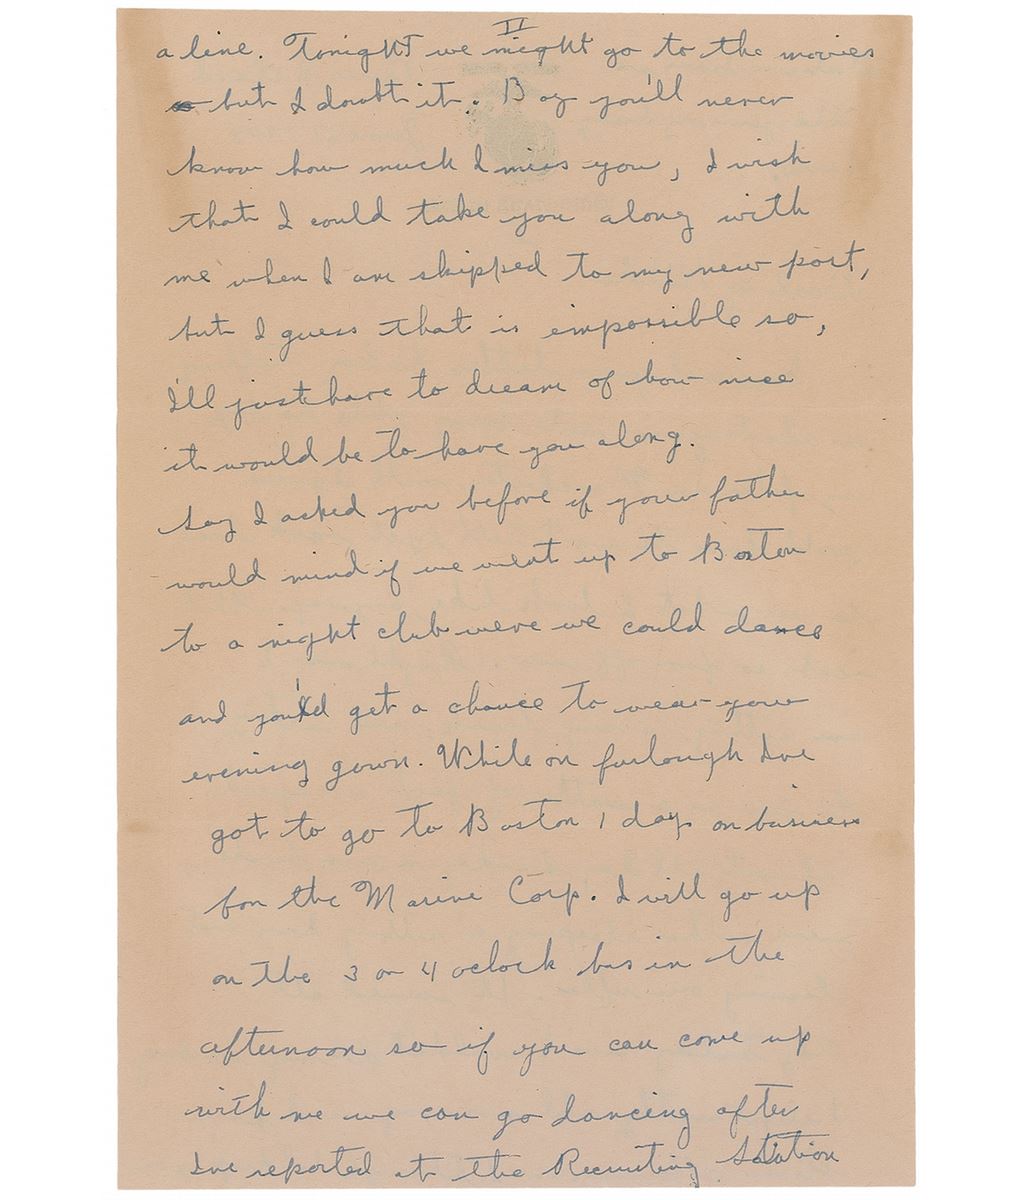 II
a line. Tonight we might go to the movies
but I doubt it. Boy you'll never
know how much I miss you, I wish
that I could take you along with
me when I am shipped to my new post,
but I guess that is empossible so,
I'll just have to dream of how nice
it would be to have you along.
Say I asked you before if your father
would mind if we went up to Boston
to a night club were we could dance
and you'd get a chance to wear your
evening gown. While on furlough I've
got to go to Boston 1 day on business
for the Marine Corp. I will go up
on the 3 or 4 oclock bus in the
afternoon so if you can come up
with me we can go dancing after
I've reported at the Recruiting Station